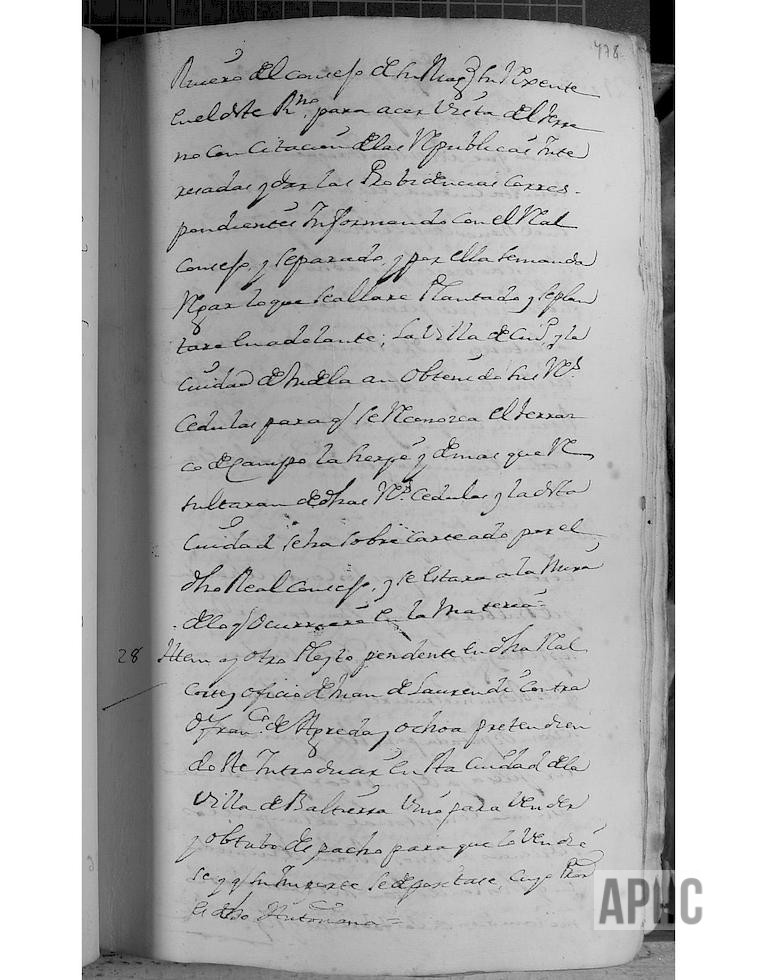 478
del consejo de su Mag.d su Rexente
en el dho Rno, para acer Vista del terre
no con Citacion de las Republicas Inte
resadas y dar las Probidencias Corres-
pondientes Informando con el Real
Consejo y separado, y por ella se manda
Regar lo que se allare Plantado, y se plan
tare en adelante; La Villa de y la
Ciudad de tudela an obtenido sus R.s
Cedulas para q se Reconozca el terrar
co de Campo la serpe y demas que Re
sultaran de dhas R.s Cedulas, y la dha
Ciudad se ha sobre carteado por el
dho Real Consejo, y se estara a la mira
de lo q ocurriere en la Materia=
28 Item ay otro Pleyto pendente en dha Real
Corte y oficio de Juan de Laurendi contra
Dn Fran.co de Agreda y ochoa pretendien
do Introducir en sta Ciudad de la
Villa de Baltierra vino para vender
y obtubo despacho para que lo vendie
se y q su Importe se depositase, Cuyo
es dho =
APHC